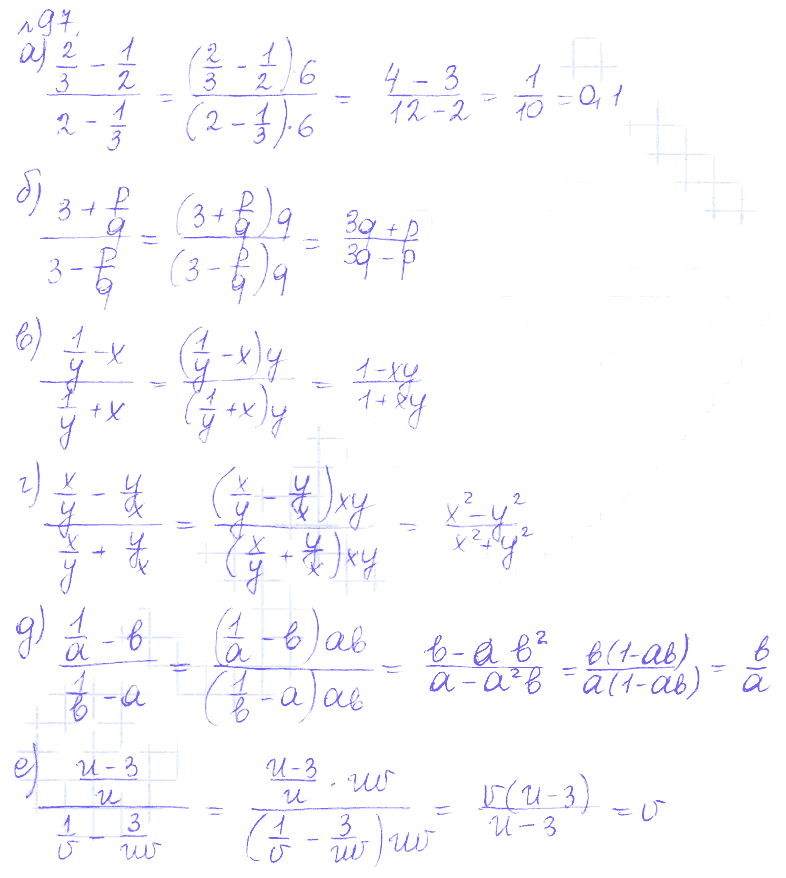 №97.
а) (2/3 - 1/2)/(2 - 1/3) = ((2/3 - 1/2)·6)/((2 - 1/3)·6) = (4 - 3)/(12 - 2) = 1/10 = 0,1
б) (3 + p/q)/(3 - p/q) = ((3 + p/q)q)/((3 - p/q)q) = (3q + p)/(3q - p)
в) (1/y - x)/(1/y + x) = ((1/y - x)y)/((1/y + x)y) = (1 - xy)/(1 + xy)
г) (x/y - y/x)/(x/y + y/x) = ((x/y - y/x)xy)/((x/y + y/x)xy) = (x² - y²)/(x² + y²)
д) (1/a - b)/(1/b - a) = ((1/a - b)ab)/((1/b - a)ab) = (b - a b²)/(a - a²b) = (b(1 - ab))/(a(1 - ab)) = b/a
е) ((u - 3)/u)/(1/v - 3/uv) = ((u - 3)/u · uv)/((1/v - 3/uv)uv) = (v(u - 3))/(u - 3) = v